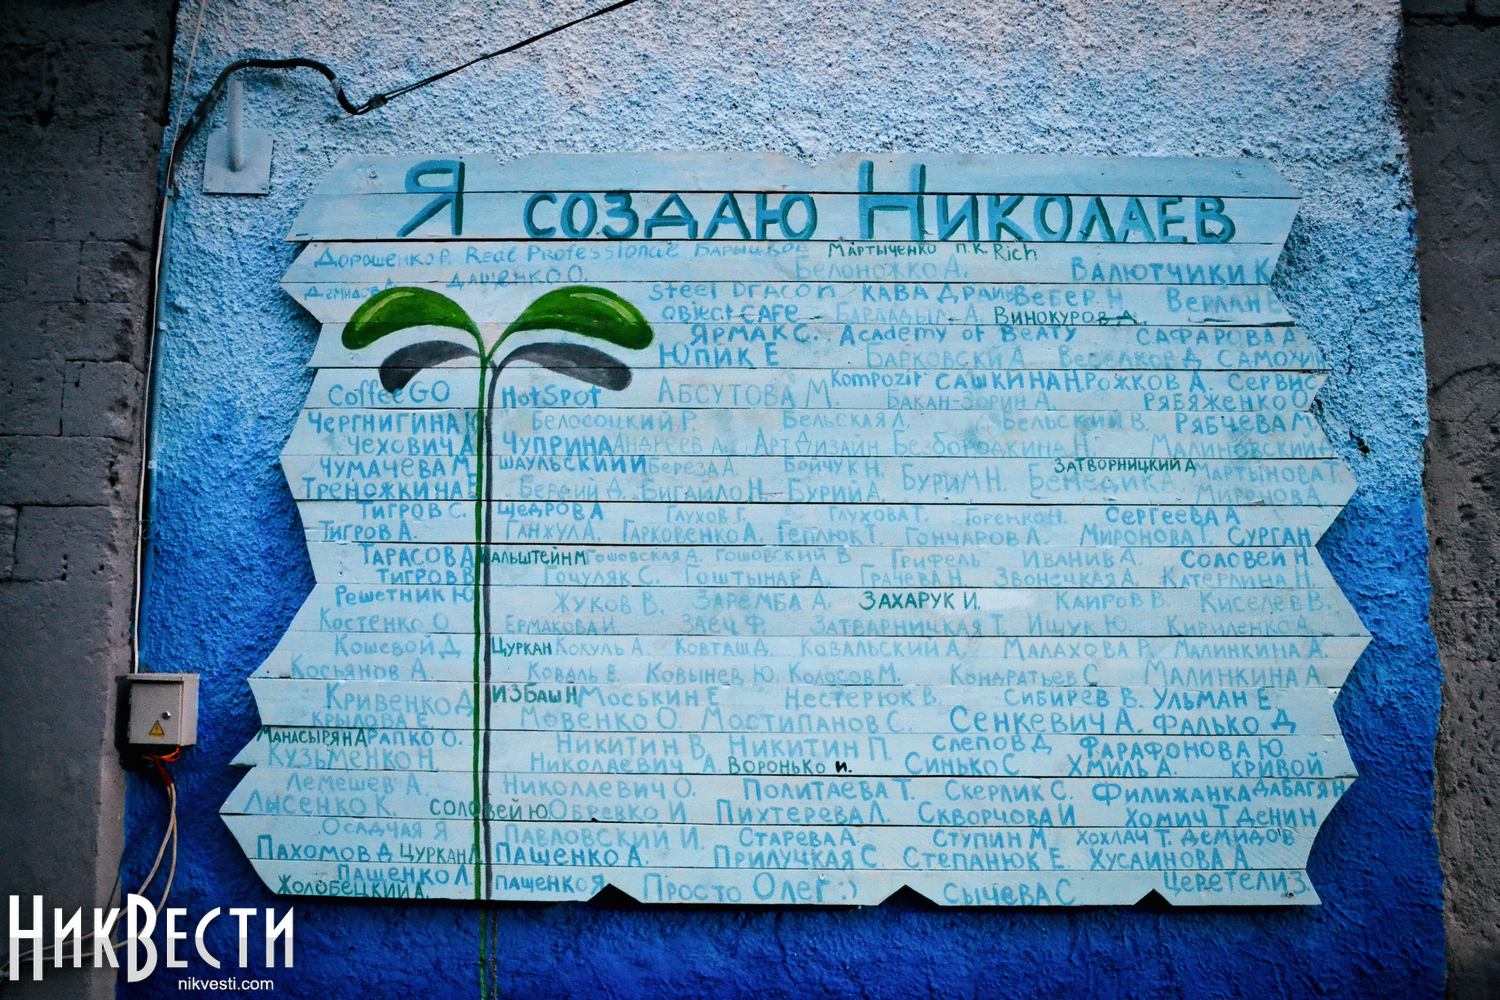 Я создаю Николаев
Дорошенко Р. Real Professional Барышков Мартыченко П.К. Rich
Дащенко О. Белоножко А. Валютчики К
Демидов А Steel Dracon КАВА ДРАЙВ Вебер Н Верлан Е
Object CAFE Бардадым А. Винокуров Д.
Ярмак С. Academy of Beaty Сафарова А
Юпик Е Барковский А. Веселков Д Самохин
CoffeeGO HotSpot Абсутова М. Kompozit Сашкина Н. Рожков А. Сервис
Бакан-Зорин А. Рябяженко О.
Чергнигина К Белосоцкий Г. Бельская Л. Бельский В. Рябчева М.
Чехович А Чуприна Андреев А. Арт Дизайн Безбородкина Н. Малиновский
Чумачева М. Шаульскиий И Береза А. Бойчук Н. Бурим Н. Затворницкий А Мартынова Т.
Треножкина Е Бергий Д. Бигайло Н. Бурий А. Бенедика А. Миронов А.
Тигров С. Щедрова А Глухов Г. Глухова Т. Горенко Н. Сергеева А
Тигров А. Ганжул А. Гарковенко А. Геплюк Т. Гончарова А. Миронова Т. Сурган
Тарасова А альштейн М Гошовская А. Гошовский В Грифель Иванив А. Соловей Н.
Тигров В Гоцуляк С. Гоштынар А. Грачева Н. Звонецкая А. Катерлина Н.
Решетник Ю Жуков В. Заремба А. Захарук И. Каиров В. Киселев В.
Костенко О. Ермакова И. Заец Ф. Затварницкая Т. Ищук Ю. Кириленко А.
Кошевой Д. Цуркан Кокуль А. Ковташ Д. Ковальский А. Малахова Р. Малинкина А.
Косьянов А. Коваль Е. Ковынев Ю. Колосов М. Кондратьев С Малинкина А
Кривенко Д Избаш Н Моськин Е Нестерюк В. Сибирев В. Ульман Е.
Крылова Е. Мовенко О. Мостипанов С. Сенкевич А. Фалько Д
Манасырян А Рапко О. Никитин В. Никитин П. Слепов Д Фарафонова Ю
Кузьменко Н Николаевич А. Воронько И. Синько С Хмиль А. Кривой
Лемешев А. Николаевич О. Политаева Т. Скерлик С. Филижанка Дабагян
Лысенко К. Соловей Ю. Обревко И Пихтерева Л. Скворчова И Хомич Т Денин
Осадчая Я Павловский И. Старева А. Ступин М. Хохлач Т. Демидов
Пахомов Д Цуркан А Пащенко А. Прилуцкая С. Степанюк Е. Хусаинова А.
Пащенко Л Пащенко Я Просто Олег :) Сычева С Церетели З.
Жолобецкий А.
НикВести
nikvesti.com